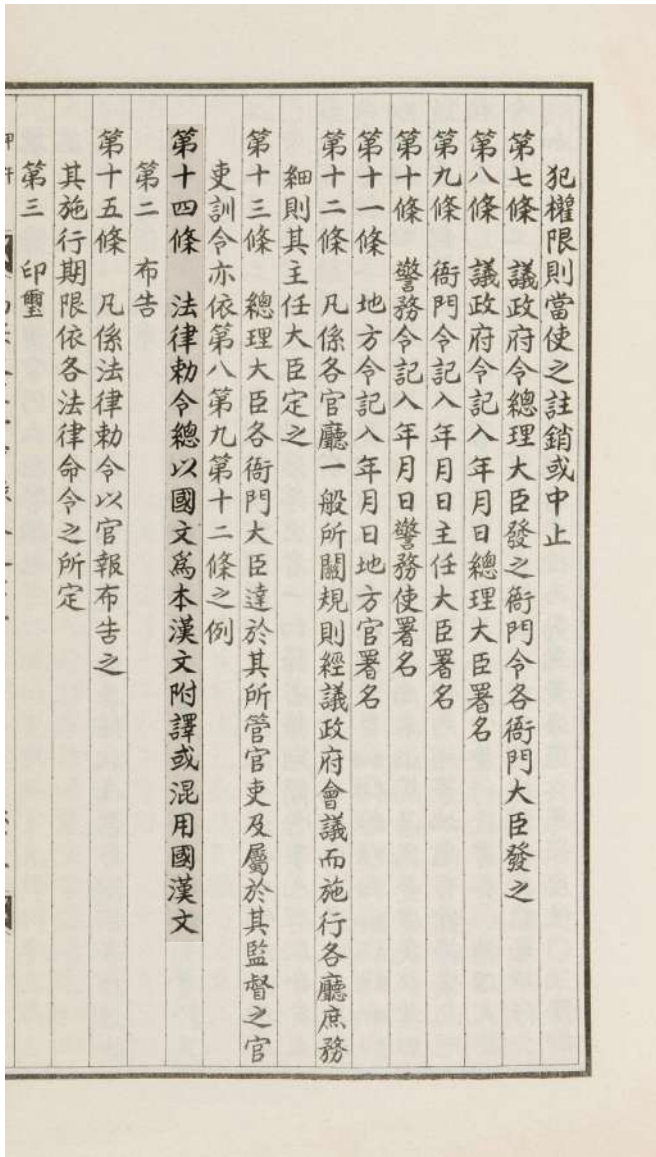 犯權限則當使之註銷或中止
第七條　議政府令總理大臣發之衙門令各衙門大臣發之
第八條　議政府令記入年月日總理大臣署名
第九條　衙門令記入年月日主任大臣署名
第十條　警務令記入年月日警務使署名
第十一條　地方令記入年月日地方官署名
第十二條　凡係各官廳一般所關規則經議政府會議而施行各廳庶務
細則其主任大臣定之
第十三條　總理大臣各衙門大臣達於其所管官吏及屬於其監督之官
吏訓令亦依第八第九第十二條之例
第十四條　法律勅令總以國文爲本漢文附譯或混用國漢文
第二　布告
第十五條　凡係法律勅令以官報布告之
其施行期限依各法律命令之所定
第三　印璽